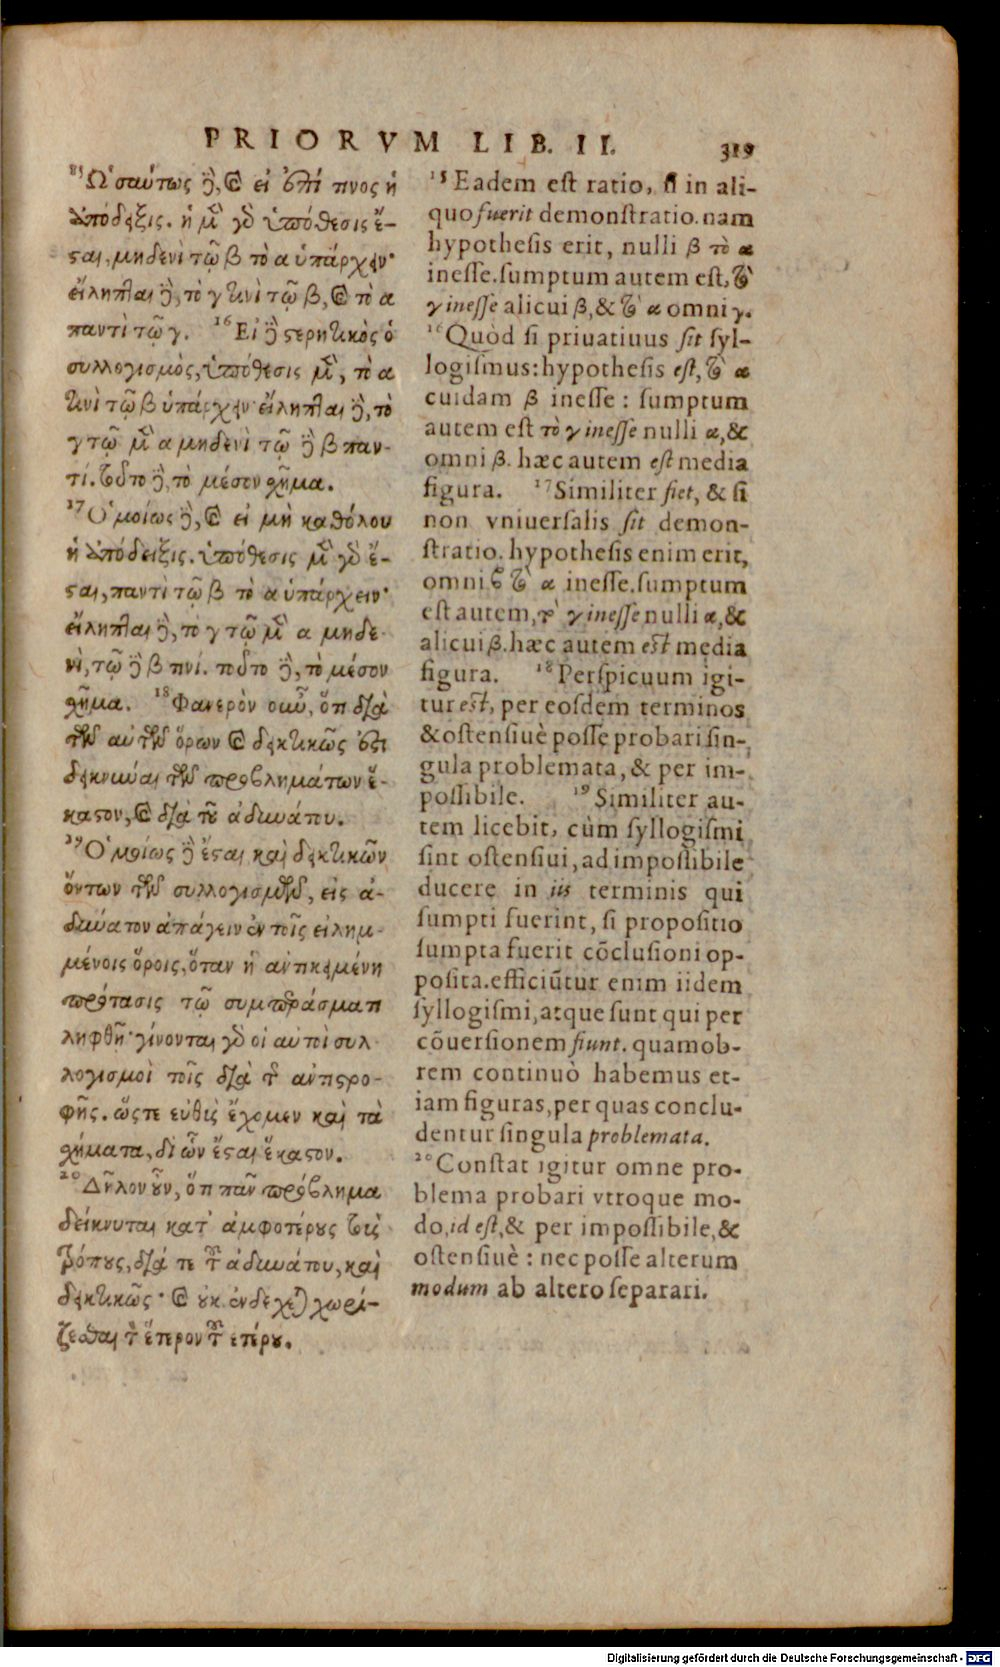 PRIORVM LIB. II. 319
¹⁵Ὡσαύτως δὲ, καὶ εἰ ἐπί τινος ἡ
ἀπόδειξις. ἡ μὲν γὰρ ὑπόθεσις ἔ-
σται, μηδενὶ τῷ β τὸ α ὑπάρχειν·
εἴληπται δὲ, τὸ γ τινὶ τῷ β, καὶ τὸ α
παντὶ τῷ γ. ¹⁶Εἰ δὲ στερητικὸς ὁ
συλλογισμὸς, ὑπόθεσις μὲν, τὸ α
τινὶ τῷ β ὑπάρχειν· εἴληπται δὲ, τὸ
γ τῷ μὲν α μηδενὶ τῷ δὲ β παν-
τί. τοῦτο δὲ, τὸ μέσον σχῆμα.
¹⁷Ὁμοίως δὲ, καὶ εἰ μὴ καθόλου
ἡ ἀπόδειξις. ὑπόθεσις μὲν γὰρ ἔ-
σται, παντὶ τῷ β τὸ α ὑπάρχειν·
εἴληπται δὲ, τὸ γ τῷ μὲν α μηδε-
νὶ, τῷ δὲ β τινί. τοῦτο δὲ, τὸ μέσον
σχῆμα. ¹⁸Φανερὸν οὖν, ὅτι διὰ
τῶν αὐτῶν ὅρων καὶ δεικτικῶς ἔστι
δεικνύναι τῶν προβλημάτων ἕ-
καστον, καὶ διὰ τοῦ ἀδυνάτου.
¹⁹Ὁμοίως δὲ ἔσται καὶ δεικτικῶν
ὄντων τῶν συλλογισμῶν, εἰς ἀ-
δύνατον ἀπάγειν ἐν τοῖς εἰλημ-
μένοις ὅροις, ὅταν ἡ ἀντικειμένη
πρότασις τῷ συμπεράσματι
ληφθῇ· γίνονται γὰρ οἱ αὐτοὶ συλ-
λογισμοὶ τοῖς διὰ τῆς ἀντιστρο-
φῆς. ὥστε εὐθὺς ἔχομεν καὶ τὰ
σχήματα, δι' ὧν ἔσται ἕκαστον.
²⁰Δῆλον οὖν, ὅτι πᾶν πρόβλημα
δείκνυται κατ' ἀμφοτέρους τοὺς
τρόπους, διά τε τοῦ ἀδυνάτου, καὶ
δεικτικῶς· καὶ οὐκ ἐνδέχεται χωρί-
ζεσθαι τὸ ἕτερον τοῦ ἑτέρου.
¹⁵Eadem est ratio, si in ali-
quo fuerit demonstratio. nam
hypothesis erit, nulli β τὸ α
inesse. sumptum autem est, τὸ
γ inesse alicui β, & τὸ α omni γ.
¹⁶Quòd si priuatiuus sit syl-
logismus: hypothesis est, τὸ α
cuidam β inesse : sumptum
autem est τὸ γ inesse nulli α, &
omni β. hæc autem est media
figura. ¹⁷Similiter fiet, & si
non vniuersalis sit demon-
stratio. hypothesis enim erit,
omni β τὸ α inesse. sumptum
est autem, τὸ γ inesse nulli α, &
alicui β. hæc autem est media
figura. ¹⁸Perspicuum igi-
tur est, per eosdem terminos
& ostensiuè posse probari sin-
gula problemata, & per im-
possibile. ¹⁹Similiter au-
tem licebit, cùm syllogismi
sint ostensiui, ad impossibile
ducere in iis terminis qui
sumpti fuerint, si propositio
sumpta fuerit cõclusioni op-
posita. efficiũtur enim iidem
syllogismi, atque sunt qui per
cõuersionem fiunt. quamob-
rem continuò habemus et-
iam figuras, per quas conclu-
dentur singula problemata.
²⁰Constat igitur omne pro-
blema probari vtroque mo-
do, id est, & per impossibile, &
ostensiuè : nec posse alterum
modum ab altero separari.
Digitalisierung gefördert durch die Deutsche Forschungsgemeinschaft - DFG